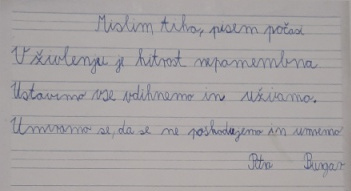 Mislim tiho, pišem počasi
V življenju je hitrost nepomembna.
Ustavimo se vdihnemo in uživamo.
Umirimo se, da se ne poškodujemo in umremo
Petra Bungar